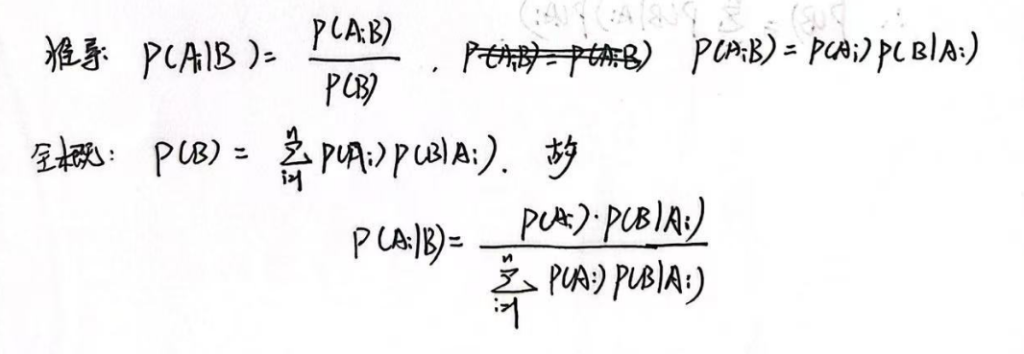 推导: P(Ai|B) = P(AiB) / P(B) , P(AiB) = P(Ai)P(B|Ai)
全概: P(B) = ∑_{i=1}^{n} P(Ai)P(B|Ai). 故
P(Ai|B) = P(Ai)·P(B|Ai) / ∑_{i=1}^{n} P(Ai)P(B|Ai)